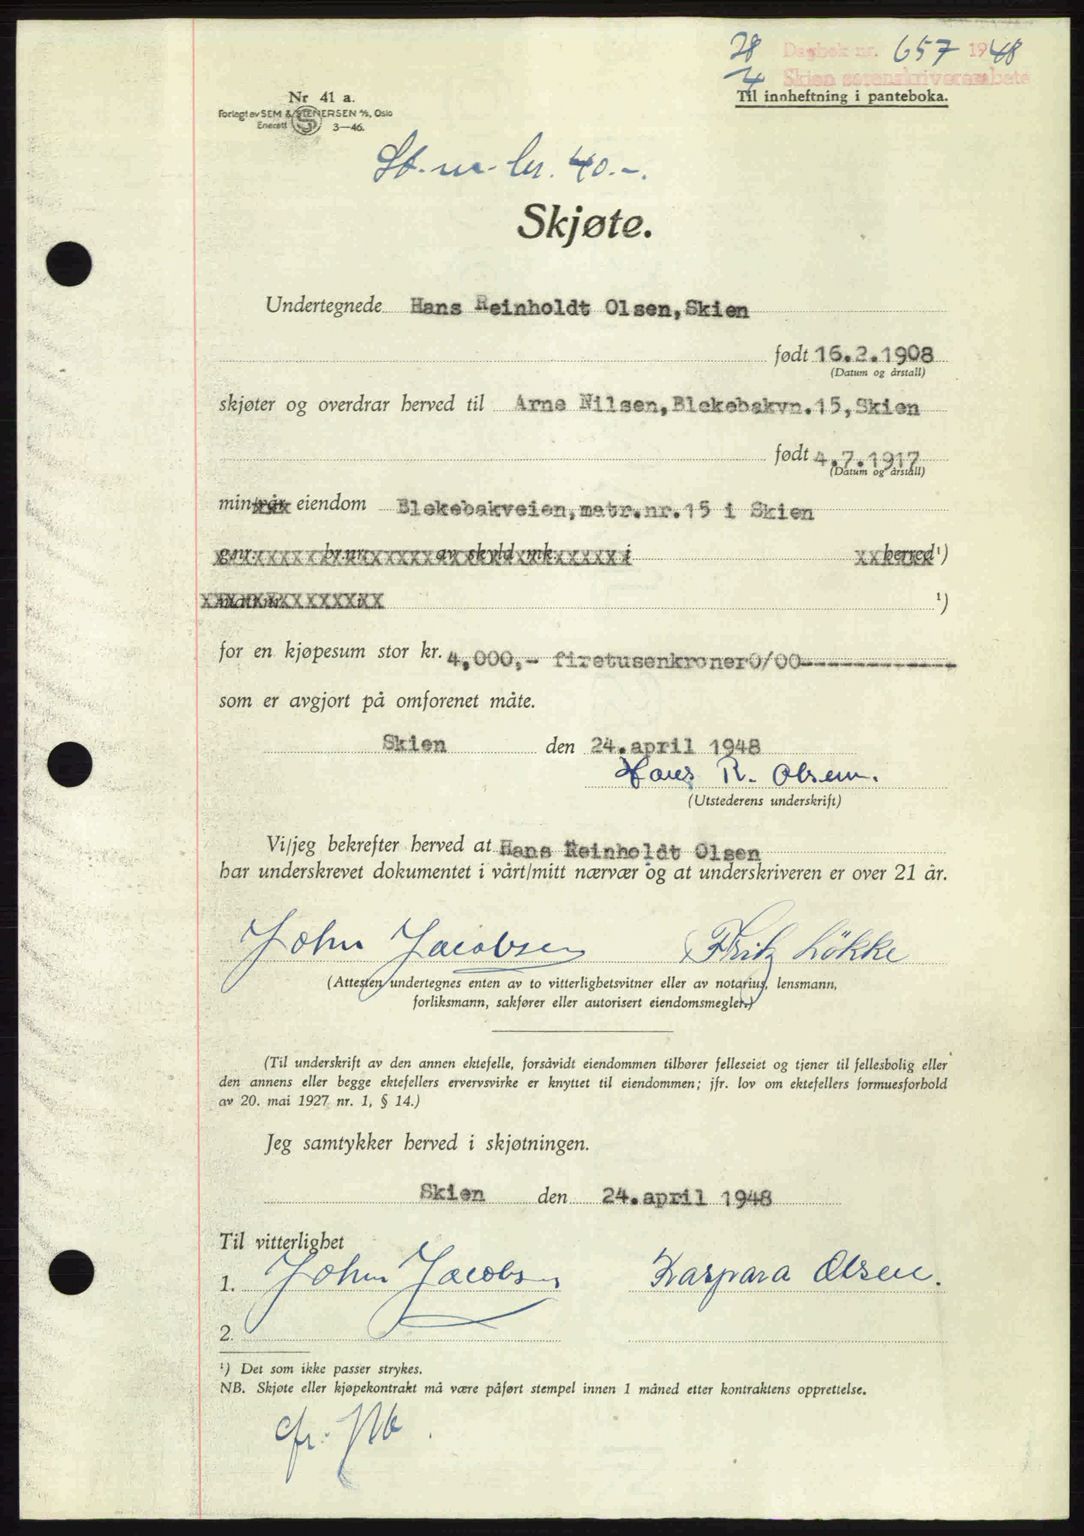 28/4 Dagbok nr. 657 1948
Skien sorenskriverembete
Til innheftning i panteboka.
Nr 41 a.
Forlagt av SEM & STENERSEN A/S, Oslo
Enerett 3—46.
St. m. kr. 40.-.
Skjøte.
Undertegnede Hans Reinholdt Olsen, Skien
født 16.2.1908
(Datum og årstall)
skjøter og overdrar herved til Arne Nilsen, Blekebakvn. 15, Skien
født 4.7.1917
(Datum og årstall)
min/vår eiendom Blekebakveien, matr.nr. 15 i Skien
gnr. br.nr. av skyld mk. i herred ¹)
matr.nr. i ¹)
for en kjøpesum stor kr. 4,000,- firetusenkroner0/00-------------
som er avgjort på omforenet måte.
Skien den 24. april 1948
Hans R. Olsen.
(Utstederens underskrift)
Vi/jeg bekrefter herved at Hans Reinholdt Olsen
har underskrevet dokumentet i vårt/mitt nærvær og at underskriveren er over 21 år.
John Jacobsen Fritz Løkke
(Attesten undertegnes enten av to vitterlighetsvitner eller av notarius, lensmann,
forliksmann, sakfører eller autorisert eiendomsmegler.)
(Til underskrift av den annen ektefelle, forsåvidt eiendommen tilhører felleseiet og tjener til fellesbolig eller
den annens eller begge ektefellers ervervsvirke er knyttet til eiendommen; jfr. lov om ektefellers formuesforhold
av 20. mai 1927 nr. 1, § 14.)
Jeg samtykker herved i skjøtningen.
Skien den 24. april 1948
Til vitterlighet
1. John Jacobsen Kaspara Olsen.
2.
¹) Det som ikke passer strykes.
NB. Skjøte eller kjøpekontrakt må være påført stempel innen 1 måned etter kontraktens opprettelse.